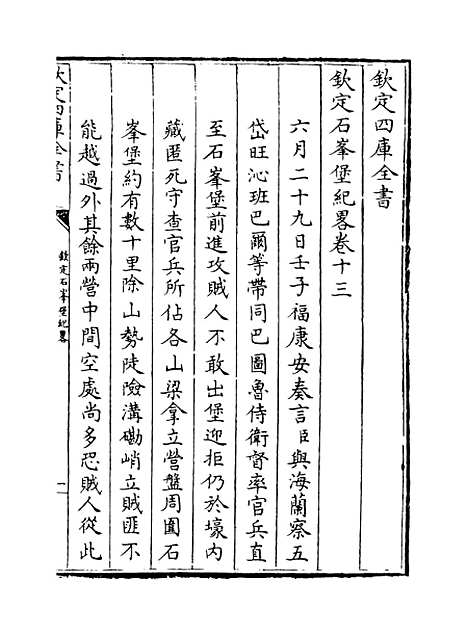 欽定四庫全書
欽定石峯堡紀畧卷十三
六月二十九日壬子福康安奏言臣與海蘭察五
岱旺沁班巴爾等帶同巴圖魯侍衛督率官兵直
至石峯堡前進攻賊人不敢出堡迎拒仍於壕內
藏匿死守查官兵所佔各山梁拿立營盤周圍石
峯堡約有數十里除山勢陡險溝磡峭立賊匪不
能越過外其餘兩營中間空處尚多恐賊人從此
欽定四庫全書
欽定石峯堡紀畧
一